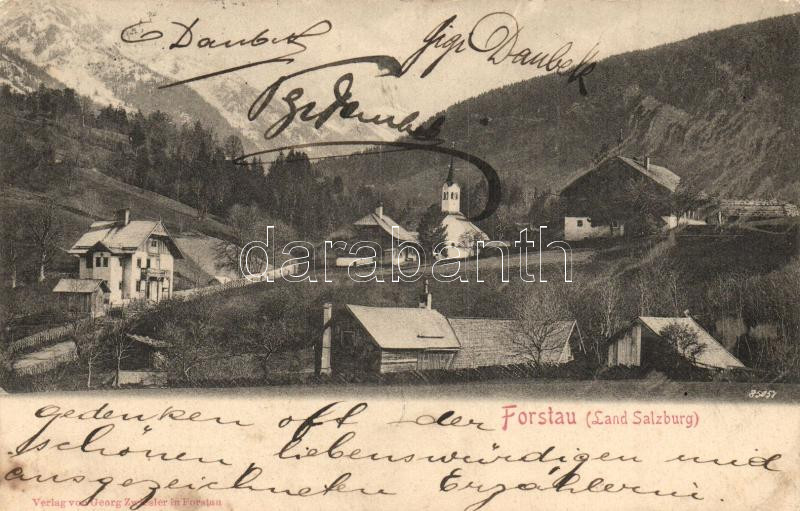 E Daubek
Gigi Daubek
darabanth
85051
Forstau (Land Salzburg)
gedenken oft der
schönen liebenswürdigen und
ausgezeichneten Erzählerin.
Verlag von Georg in Forstau